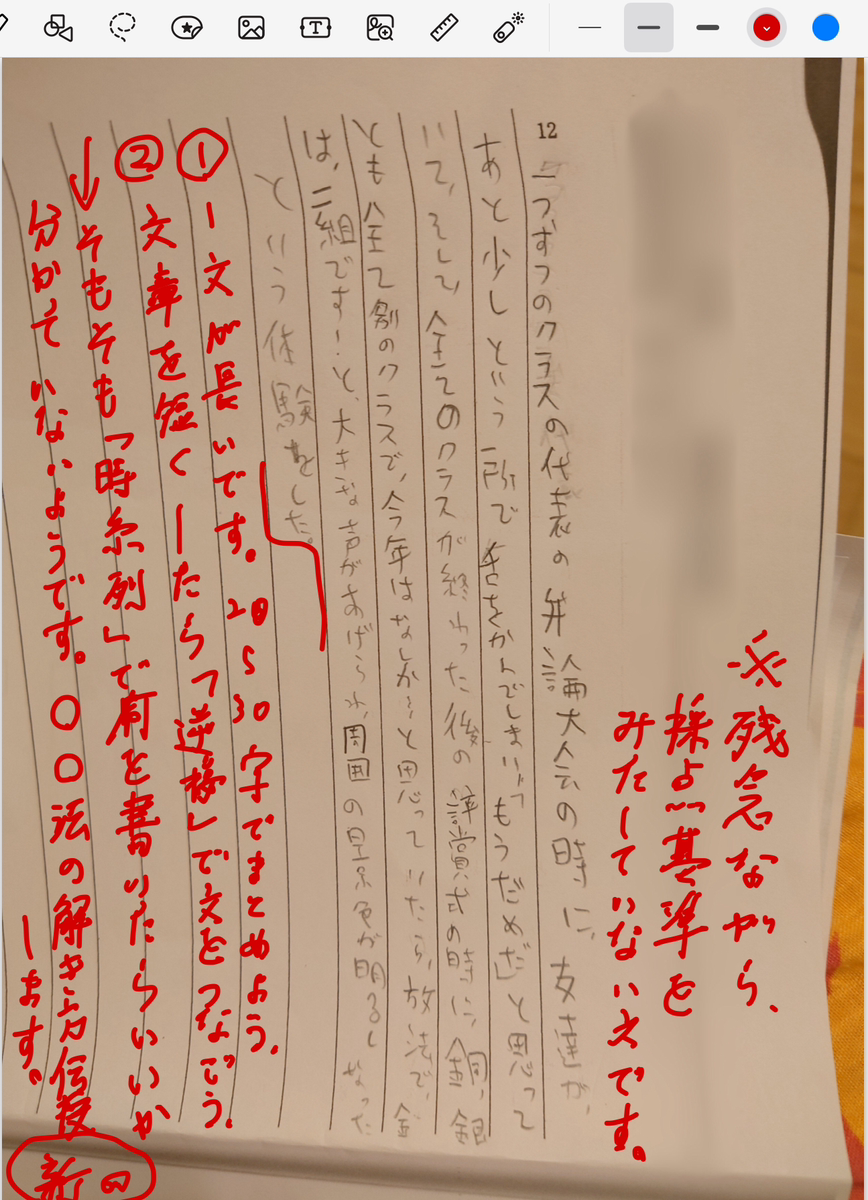 ※残念ながら、
採点基準を
みたしていない文です。
12
一つずつのクラスの代表の弁論大会の時に、友達が、
あと少しという所で舌をかんでしまい、「もうだめだ」と思って
いて、そして、全てのクラスが終わった後の評賞式の時に、銅、銀
とも全て別のクラスで、今年はなしか…と思っていたら、放送で、金
は、二組です!と、大きな声があげられ、周囲の景色が明るくなった
という体験をした。
① 1文が長いです。20~30字でまとめよう。
② 文章を短くしたら「逆接」で文をつなごう。
↓そもそも「時系列」で何を書いたらいいか
分かっていないようです。〇〇法の解き方伝授
します。
新の